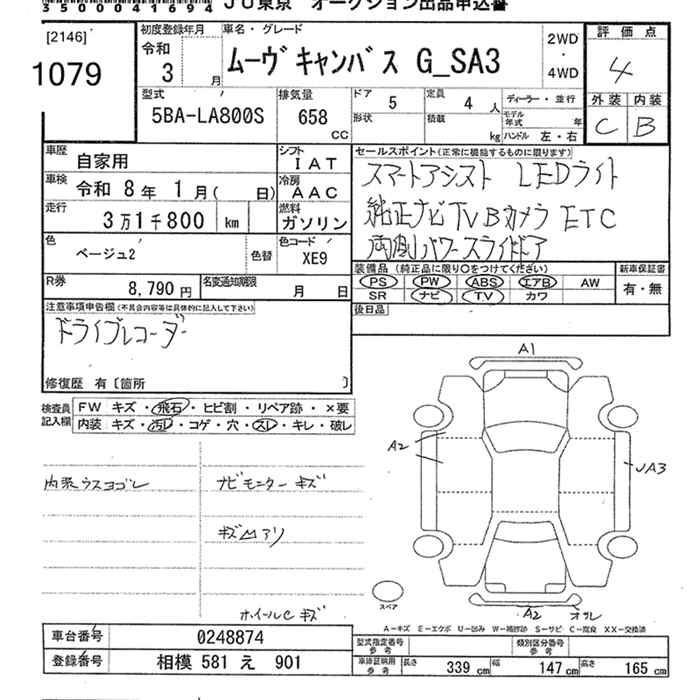 35000041694 JU東京 オークション出品申込書
[2146]
1079
初度登録年月
令和
3 月
車名・グレード
ムーヴキャンバス G_SA3
2WD
・
4WD
評価点
4
外装 内装
C B
型式
5BA-LA800S
排気量
658
CC
ドア 5
定員 4 人
形状
積載 kg
ディーラー・並行
モデル年式 年
ハンドル 左・右
車歴 自家用
シフト IAT
車検 令和 8年 1月( 日)
冷房 AAC
走行 3万1千800 km
燃料 ガソリン
色 ベージュ2
色替
色コード XE9
R券 8,790円
名変通知期限 月 日
セールスポイント(正常に機能するものに限ります)
スマートアシスト LEDライト
純正ナビTVBカメラ ETC
両側パワースライドドア
装備品 (純正品に限り○をつけてください)
新車保証書
PS PW ABS エアB AW
SR ナビ TV カワ
有・無
後日品
注意事項申告欄(不具合内容等は具体的に記入して下さい)
ドライブレコーダー
修復歴 有〔箇所 〕
検査員記入欄
FW キズ・飛石・ヒビ割・リペア跡・×要
内装 キズ・汚レ・コゲ・穴・スレ・キレ・破レ
A1
A2
UA3
内装ウスヨゴレ
ナビモニターキズ
キズ凹アリ
ホイールCキズ
スペア
A2 オサレ
A-キズ E-エクボ U-凹み W-補修跡 S-サビ C-腐食 XX-交換済
車台番号 0248874
登録番号 相模 581 え 901
型式指定番号 参考
類別区分番号 参考
車庫証明用 参考
長さ 339 cm 幅 147 cm 高さ 165 cm